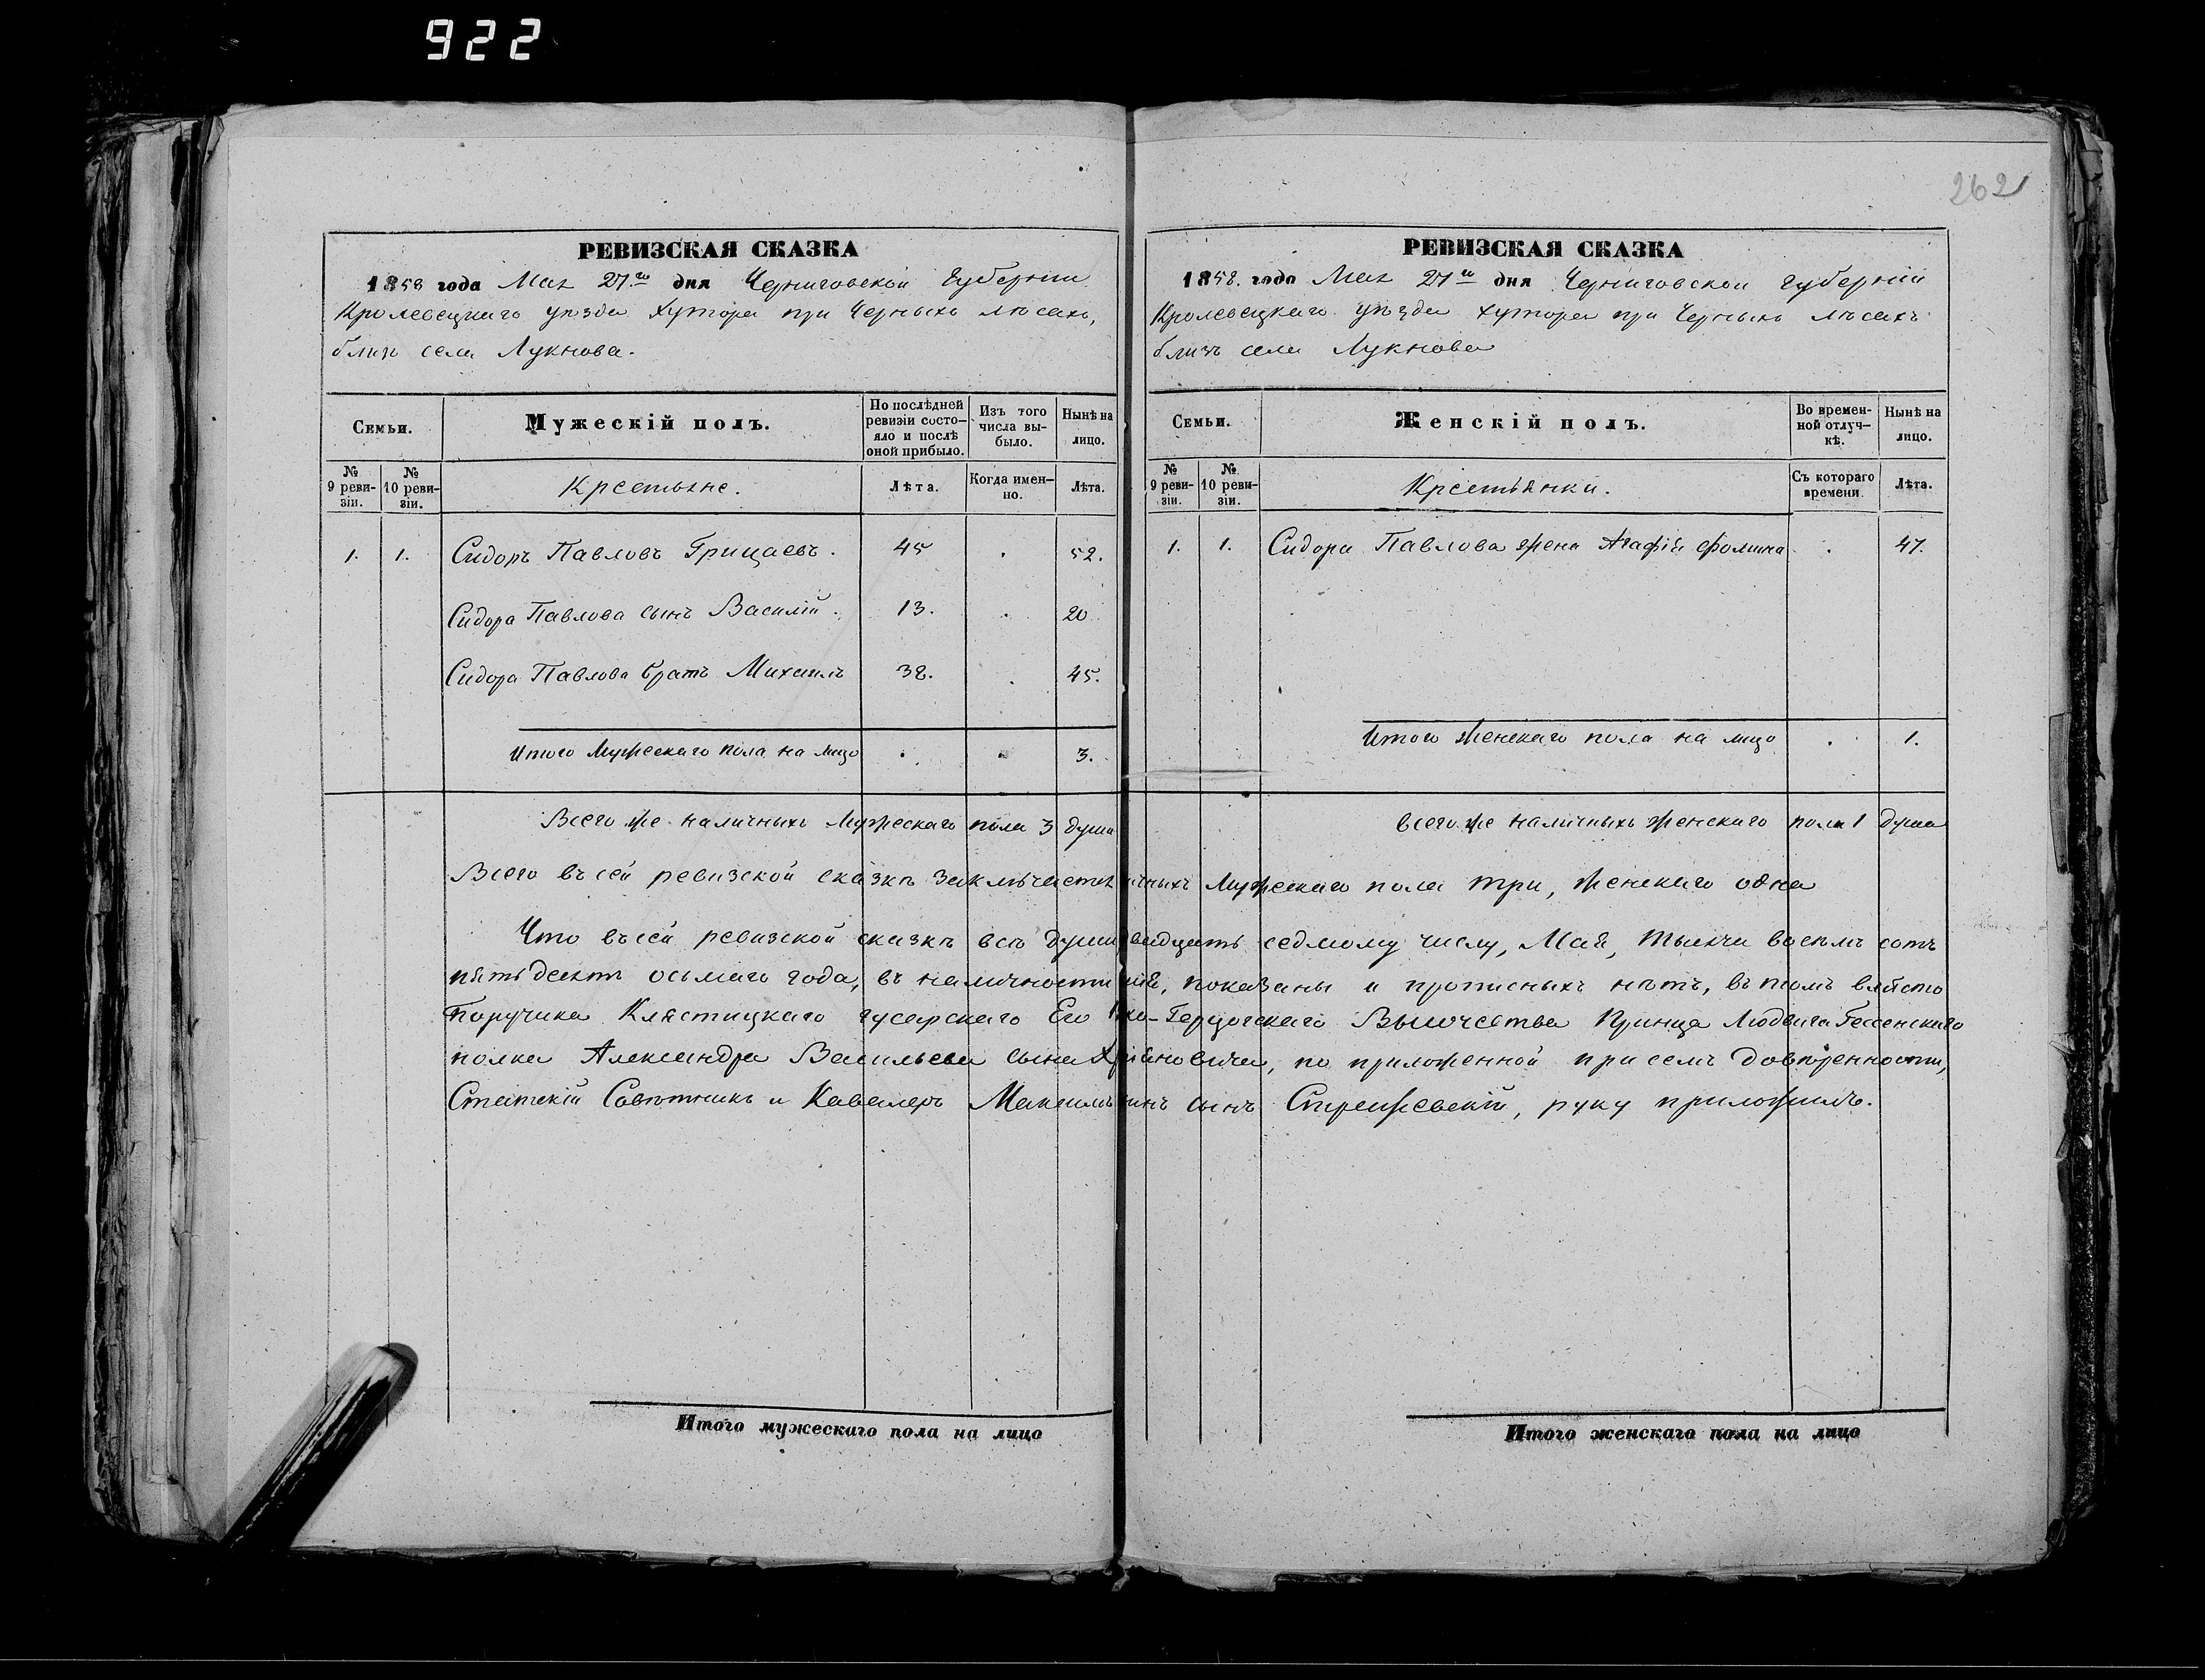 922
262
РЕВИЗСКАЯ СКАЗКА
1858 года Мая 27го дня Черниговской Губерніи
Кролевецкаго уѣзда Хутора при Черныхъ лѣсахъ,
близъ села Лукнова.
Семьи.
Мужескій полъ.
По послѣдней ревизіи состояло и послѣ оной прибыло.
Изъ того числа выбыло.
Нынѣ на лицо.
№ 9 ревизіи.
№ 10 ревизіи.
Крестьяне.
Лѣта.
Когда именно.
Лѣта.
1. 1. Сидоръ Павловъ Грицаевъ. 45 . 52.
Сидора Павлова сынъ Василій. 13. . 20
Сидора Павлова братъ Михаилъ 38. . 45.
Итого Мужескаго пола на лицо . . 3.
Всего же наличныхъ Мужескаго пола 3 души
РЕВИЗСКАЯ СКАЗКА
1858. года Мая 27го дня Черниговской губерніи
Кролевецкаго уѣзда хутора при Черныхъ лѣсахъ
близъ села Лукнова
Семьи.
Женскій полъ.
Во временной отлучкѣ.
Нынѣ на лицо.
№ 9 ревизіи.
№ 10 ревизіи.
Крестьянки.
Съ котораго времени.
Лѣта.
1. 1. Сидора Павлова жена Агафія Фомина . 47.
Итого женскаго пола на лицо . 1.
всего же наличныхъ женскаго пола 1 душа
Всего въ сей ревизской сказкѣ заключается Мужескаго пола три, женскаго одна
Что въ сей ревизской сказкѣ всѣ души седмому числу, Мая, тысяча восемь сотъ
пятьдесятъ осьмаго года, въ наличности показаны и прописныхъ нѣтъ, въ томъ вмѣсто
Поручика Клястицкаго гусарскаго Его Герцогскаго Высочества Принца Людвига Гессенскаго
полка Александра Васильева сына по приложенной при семъ довѣренности,
Статскій Совѣтникъ и Кавалеръ Максимъ сынъ руку приложилъ.
Итого мужескаго пола на лицо
Итого женскаго пола на лицо